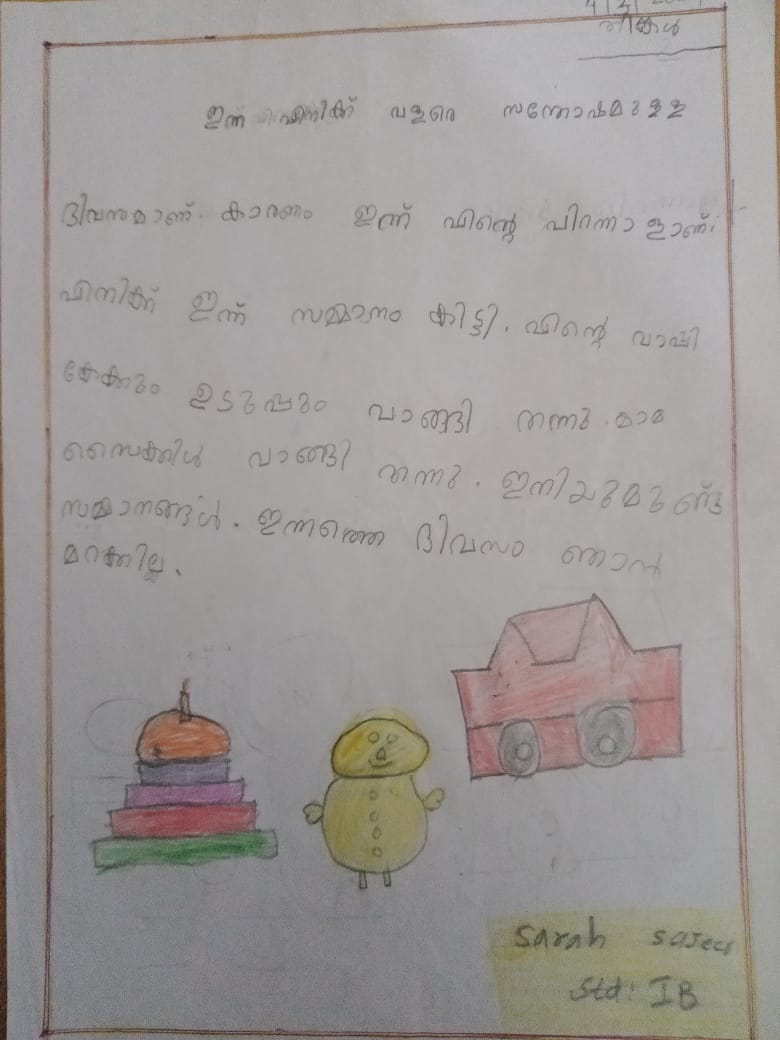 തിങ്കൾ
ഇന്ന് എനിക്ക് വളരെ സന്തോഷമുള്ള
ദിവസമാണ്. കാരണം ഇന്ന് എൻ്റെ പിറന്നാളാണ്.
എനിക്ക് ഇന്ന് സമ്മാനം കിട്ടി. എൻ്റെ വാപ്പി
കേക്കും ഉടുപ്പും വാങ്ങി തന്നു. മാമ
സൈക്കിൾ വാങ്ങി തന്നു. ഇനിയുമുണ്ട്
സമ്മാനങ്ങൾ. ഇന്നത്തെ ദിവസം ഞാൻ
മറക്കില്ല.
Sarah
Std: IB